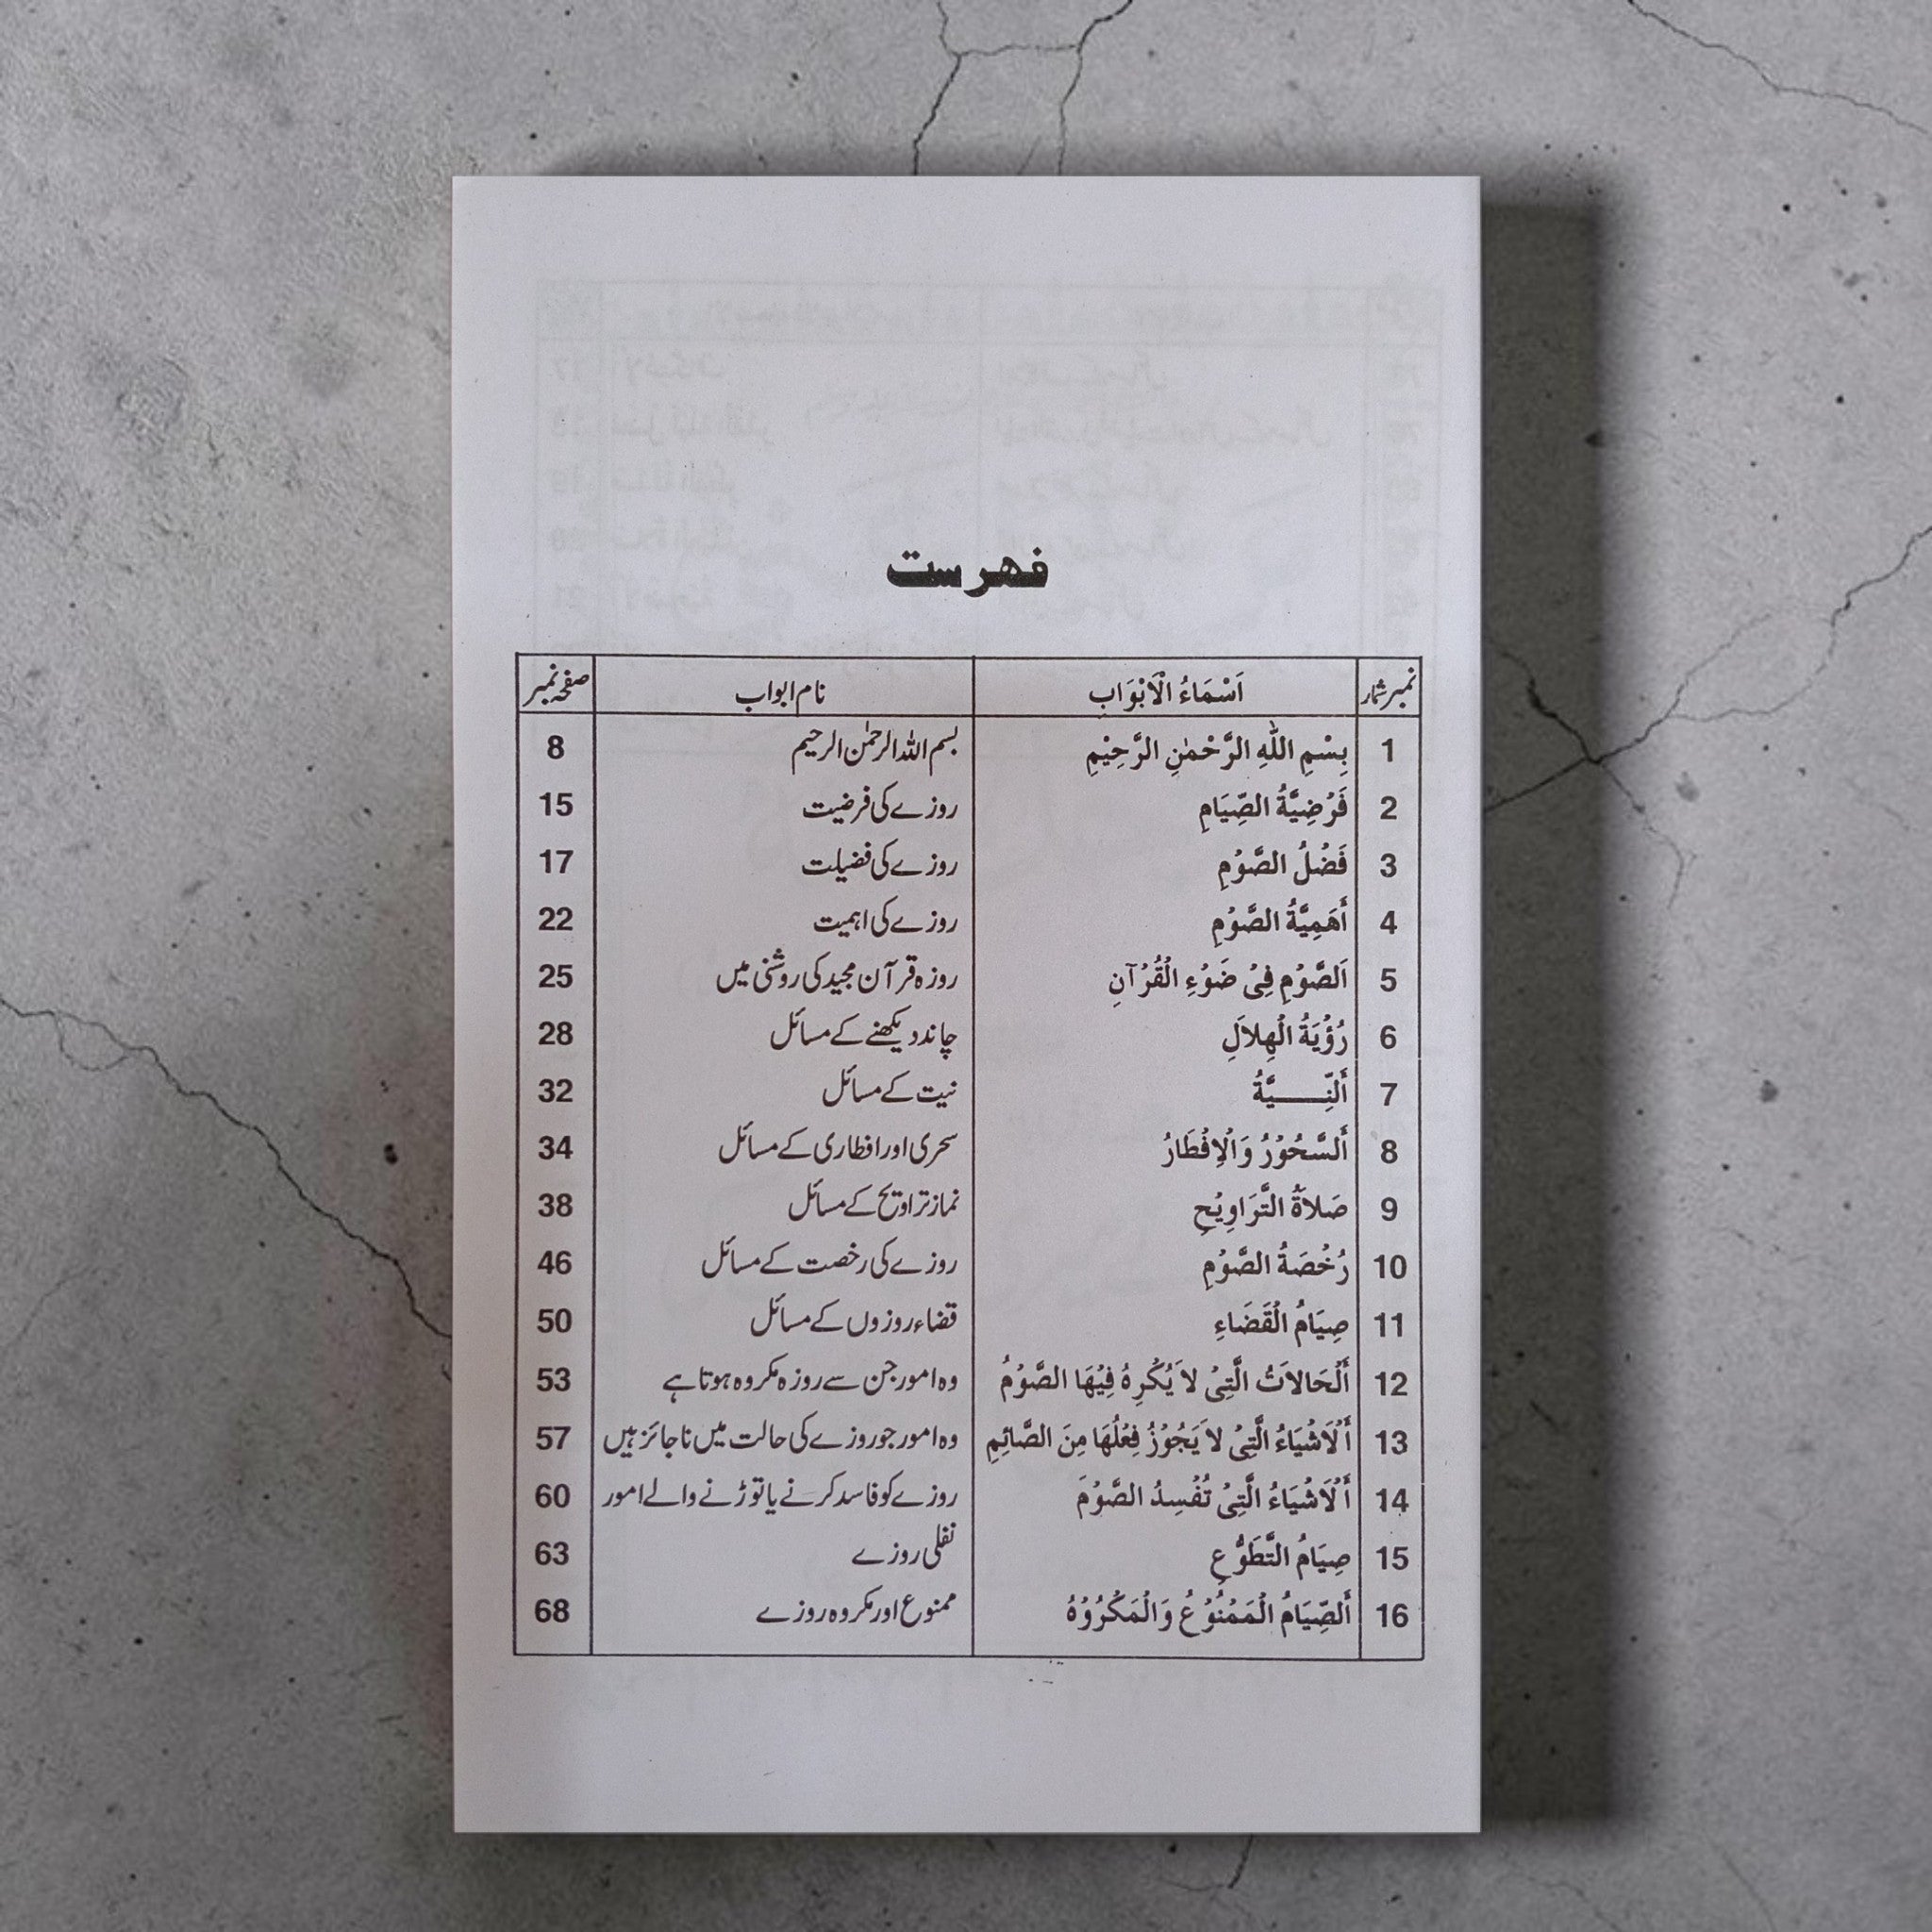 فہرست
نمبر شمار اَسْمَاءُ الْاَبْوَابِ نام ابواب صفحہ نمبر
1 بِسْمِ اللّٰهِ الرَّحْمٰنِ الرَّحِيْمِ بسم اللہ الرحمٰن الرحیم 8
2 فَرْضِيَّةُ الصِّيَامِ روزے کی فرضیت 15
3 فَضْلُ الصَّوْمِ روزے کی فضیلت 17
4 أَهَمِيَّةُ الصَّوْمِ روزے کی اہمیت 22
5 اَلصَّوْمِ فِيْ ضَوْءِ الْقُرْآنِ روزہ قرآن مجید کی روشنی میں 25
6 رُؤْيَةُ الْهِلاَلِ چاند دیکھنے کے مسائل 28
7 أَلنِّـــــيَّةُ نیت کے مسائل 32
8 أَلسَّحُوْرُ وَالْإِفْطَارُ سحری اور افطاری کے مسائل 34
9 صَلاَةُ التَّرَاوِيْحِ نماز تراویح کے مسائل 38
10 رُخْصَةُ الصَّوْمِ روزے کی رخصت کے مسائل 46
11 صِيَامُ الْقَضَاءِ قضاء روزوں کے مسائل 50
12 أَلْحَالاَتُ الَّتِيْ لاَ يُكْرِهُ فِيْهَا الصَّوْمُ وہ امور جن سے روزہ مکروہ ہوتا ہے 53
13 أَلْاَشْيَاءُ الَّتِيْ لاَ يَجُوْزُ فِعْلُهَا مِنَ الصَّائِمِ وہ امور جو روزے کی حالت میں ناجائز ہیں 57
14 أَلْاَشْيَاءُ الَّتِيْ تُفْسِدُ الصَّوْمَ روزے کو فاسد کرنے یا توڑنے والے امور 60
15 صِيَامُ التَّطَوُّعِ نفلی روزے 63
16 أَلصِّيَامُ الْمَمْنُوْعُ وَالْمَكْرُوْهُ ممنوع اور مکروہ روزے 68